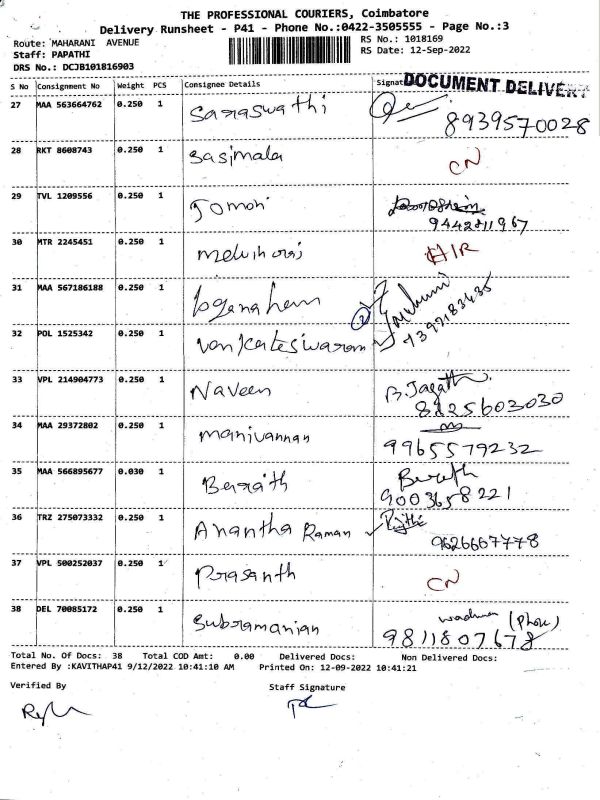 THE PROFESSIONAL COURIERS, Coimbatore
Delivery Runsheet - P41 - Phone No.:0422-3505555 - Page No.:3
Route: MAHARANI AVENUE
RS No.: 1018169
Staff: PAPATHI
RS Date: 12-Sep-2022
DRS No.: DCJB101816903
S No Consignment No Weight PCS Consignee Details Signat DOCUMENT DELIVERY
27 MAA 563664762 0.250 1 Saraswathi
8939570028
28 RKT 8608743 0.250 1 Sasimala CN
29 TVL 1209556 0.250 1 Jomon
9442811967
30 MTR 2245451 0.250 1 HIR
31 MAA 567186188 0.250 1
32 POL 1525342 0.250 1 Vankateswaran 7397183435
33 VPL 214904773 0.250 1 Naveen B. Jagath
8825603030
34 MAA 29372802 0.250 1 Manivannan
9965579232
35 MAA 566895677 0.030 1
9003658221
36 TRZ 275073332 0.250 1 Anantha Raman
9626667778
37 VPL 500252037 0.250 1 Prasanth CN
38 DEL 70085172 0.250 1 Subramanian
9811807678
Total No. Of Docs: 38 Total COD Amt: 0.00 Delivered Docs: Non Delivered Docs:
Entered By :KAVITHAP41 9/12/2022 10:41:10 AM Printed On: 12-09-2022 10:41:21
Verified By Staff Signature